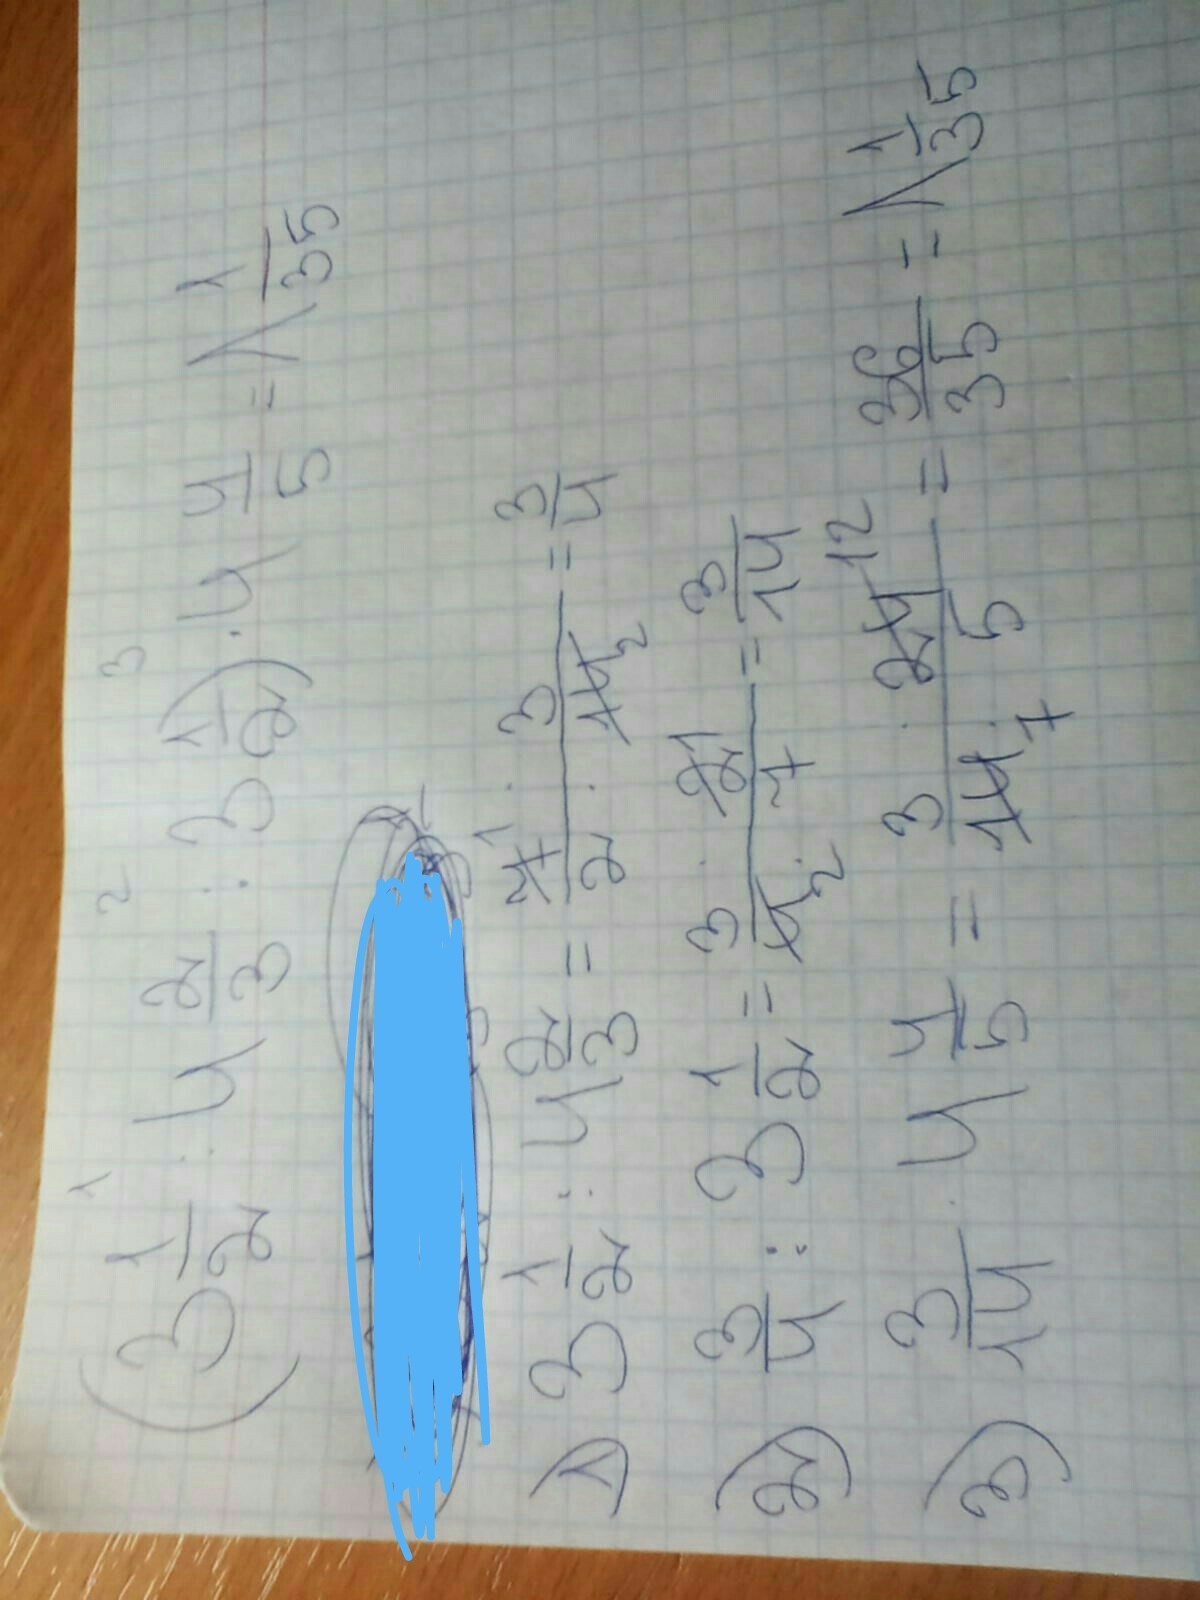 1 2 3
(3 1/2 : 4 2/3 : 3 1/2) · 4 4/5 = 1 1/35
1) 3 1/2 : 4 2/3 = 7 1 · 3 / 2 · 14 2 = 3/4
2) 3/4 : 3 1/2 = 3 · 2 1 / 4 2 · 7 = 3/14
3) 3/14 · 4 4/5 = 3 · 24 12 / 14 7 · 5 = 36/35 = 1 1/35